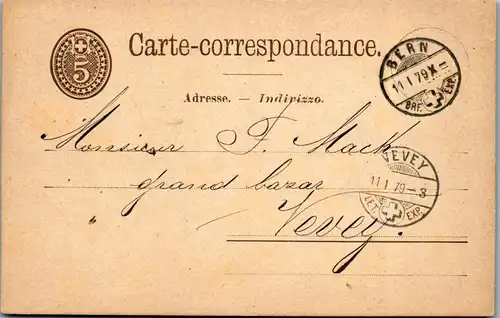 5
Carte-correspondance.
BERN
11.I.79.X
BRF. EXP.
Adresse. — Indirizzo.
Monsieur F. Mack
grand bazar
Vevey.
VEVEY
11.I.79-3
LET. EXP.